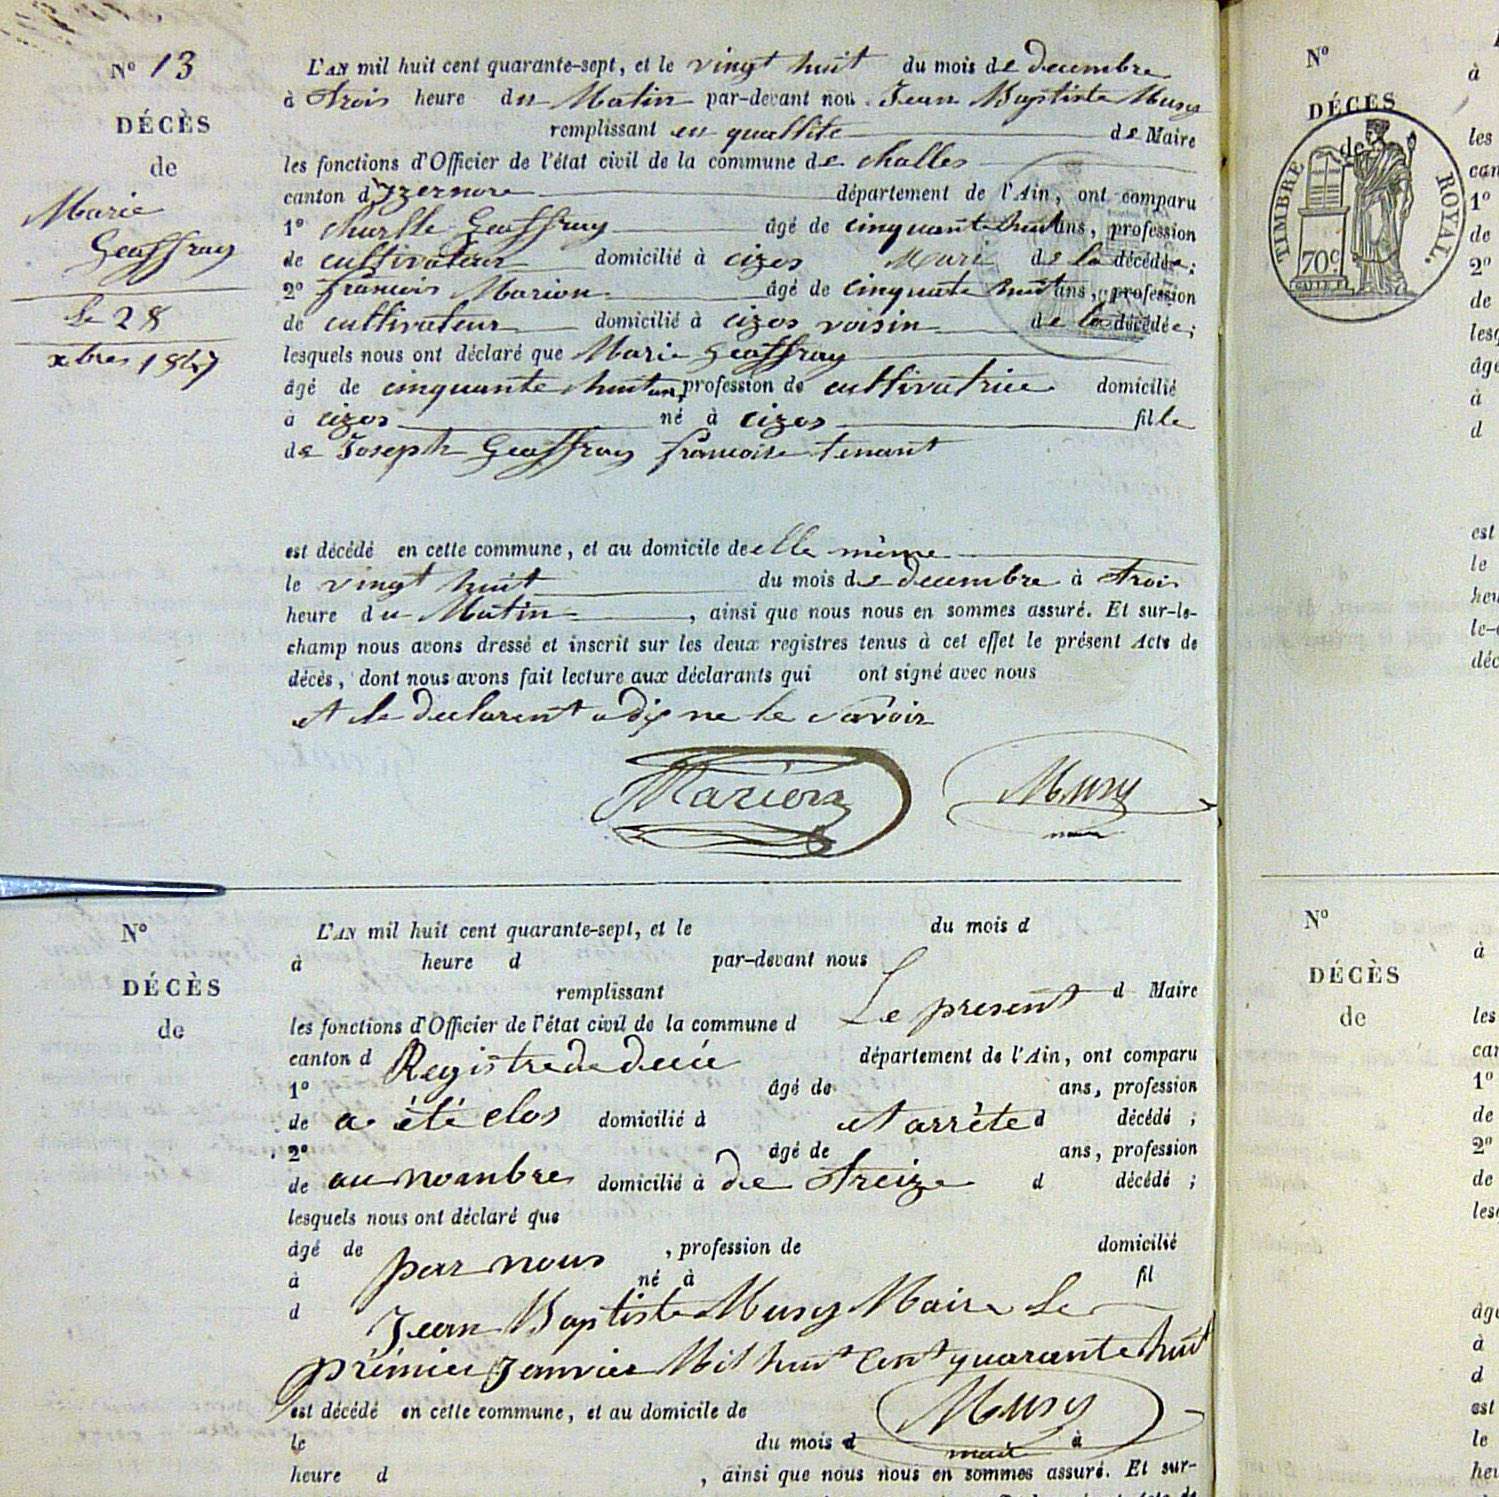 N° 13
DÉCÈS
de
Marie
Geoffray
Le 28
xbres 1847
L'AN mil huit cent quarante-sept, et le vingt huit du mois de decembre
à trois heure du Matin par-devant nou Jean Baptiste Musy
remplissant en quallité de Maire
les fonctions d'Officier de l'état civil de la commune de challes
canton d'Yzernore département de l'Ain, ont comparu
1° Charlle Geoffray âgé de cinquante huit ans, profession
de cultivateur domicilié à cizos Mari de la décédée;
2° francois Marion âgé de cinquate huit ans, profession
de cultivateur domicilié à cizos voisin de la décédée;
lesquels nous ont déclaré que Marie Geoffray
âgé de cinquante huit an, profession de cultivatrice domicilié
à cizos né à cizos fille
de Joseph Geoffray francoise tenant
est décédé en cette commune, et au domicile de elle même
le vingt huit du mois de decembre à trois
heure du Matin, ainsi que nous nous en sommes assuré. Et sur-le-
champ nous avons dressé et inscrit sur les deux registres tenus à cet effet le présent Acte de
décès, dont nous avons fait lecture aux déclarants qui ont signé avec nous
et le declarent a dis ne le savoir
Marion Musy
maire
N°
DÉCÈS
de
L'AN mil huit cent quarante-sept, et le du mois d
à heure d par-devant nous
remplissant Le present d Maire
les fonctions d'Officier de l'état civil de la commune d
canton d Registre de decée département de l'Ain, ont comparu
1° âgé de ans, profession
de a été clos domicilié à et arrêté d décédé;
2° âgé de ans, profession
de au nombre domicilié à de treize d décédé;
lesquels nous ont déclaré que
âgé de par nous , profession de domicilié
à né à fil
d Jean Baptiste Musy Maire le
prémier Janvier Mil huit Cent quarante huit
est décédé en cette commune, et au domicile de Musy
le du mois d maire à
heure d , ainsi que nous nous en sommes assuré. Et sur-
N°
DÉCÈS
de
TIMBRE ROYAL.
70c
à
les
can
1°
de
2°
de
lesq
âge
à
d
est
le
heu
le-c
déc
N°
DÉCÈS
de
à
les
can
1°
de
2°
de
lesq
âge
à
d
est
le
heu